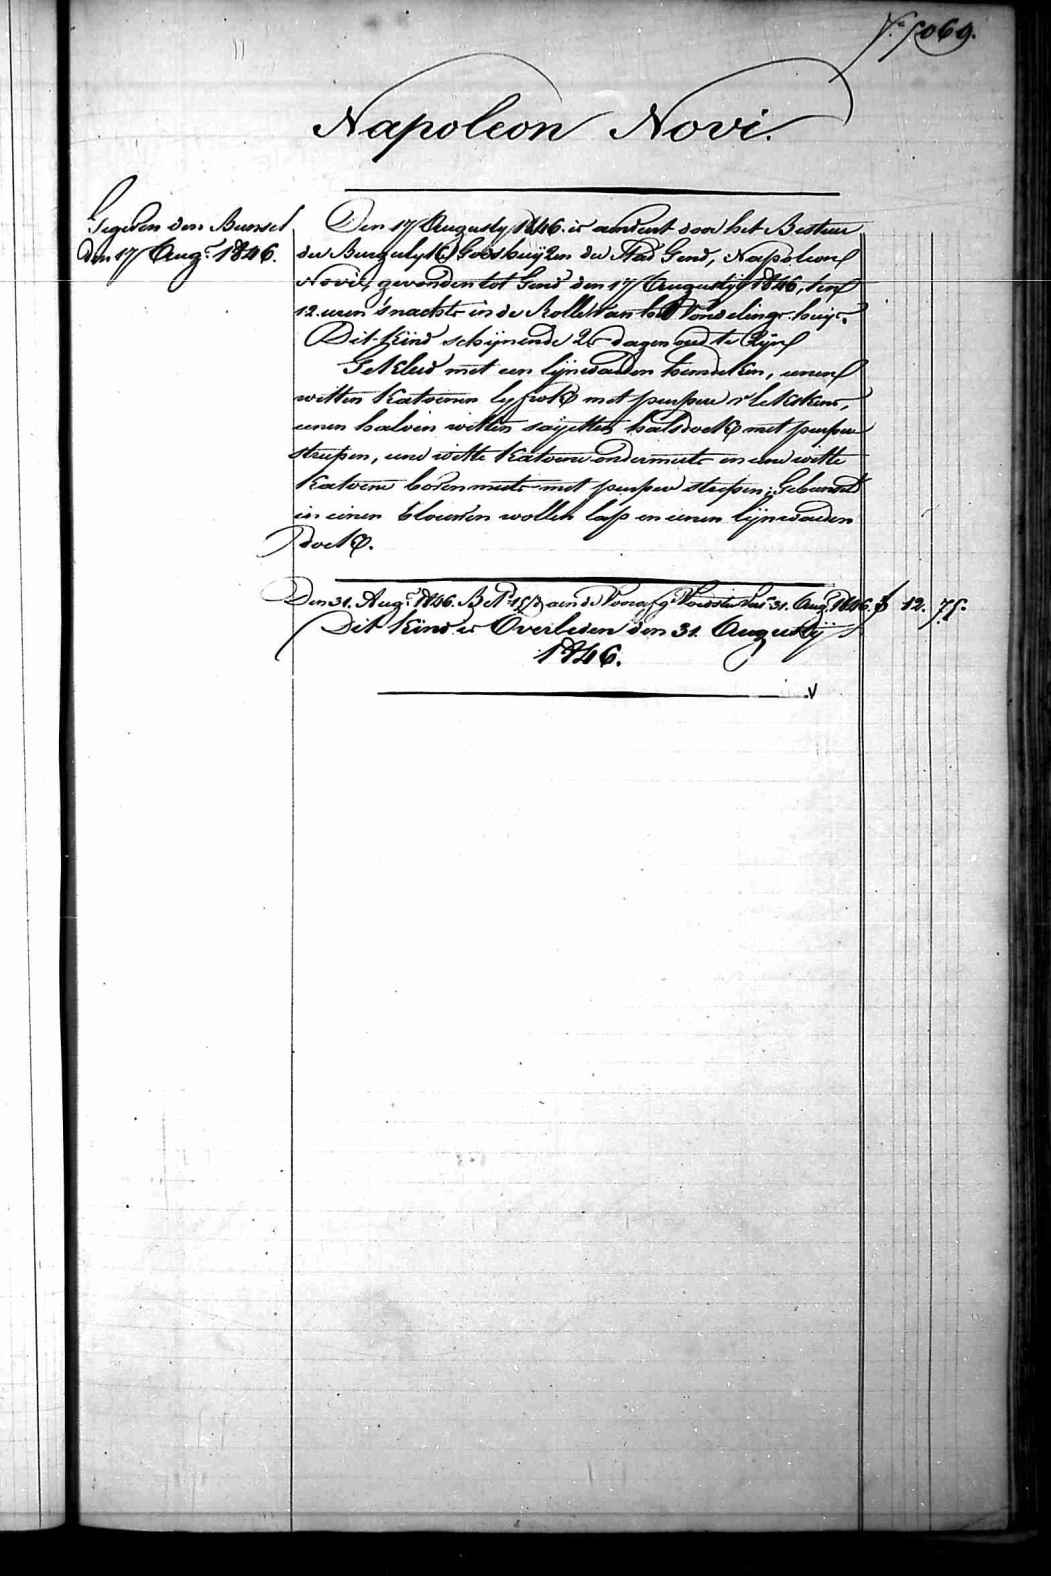 5069.
Napoleon Novi.
Gegeven den Bunsel
den 17 Aug.t 1846.
Den 17 Augusty 1846. is aenveirt door het Bestuer
der Burgerlyke Godshuyzen der Stad Gend, Napoleon
Novi, gevonden tot Gend den 17 Augustij 1846, ten
12. uren 's nachts in de Rolle van het Vondelings-huys.
Dit kind schijnende 2 dagen oud te Zijn
Gekleed met een lijnwaeden hemdeken, eenen
witten katoenen lyfrok met purpere vlekskens,
eenen halven witten saijetten halsdoek met purpere
streepen, eene witte katoene ondermuts en eene witte
katoene bovenmuts met purpere streepen; Gebunseld
in eenen blouwen wollen lap en eenen lijnwaeden
doek.
Den 31. Aug.t 1846. B N.o aen de Voorz. Voedster tot 31. Aug.t 1846. 12. 75.
Dit kind is Overleden den 31. Augustij
1846.